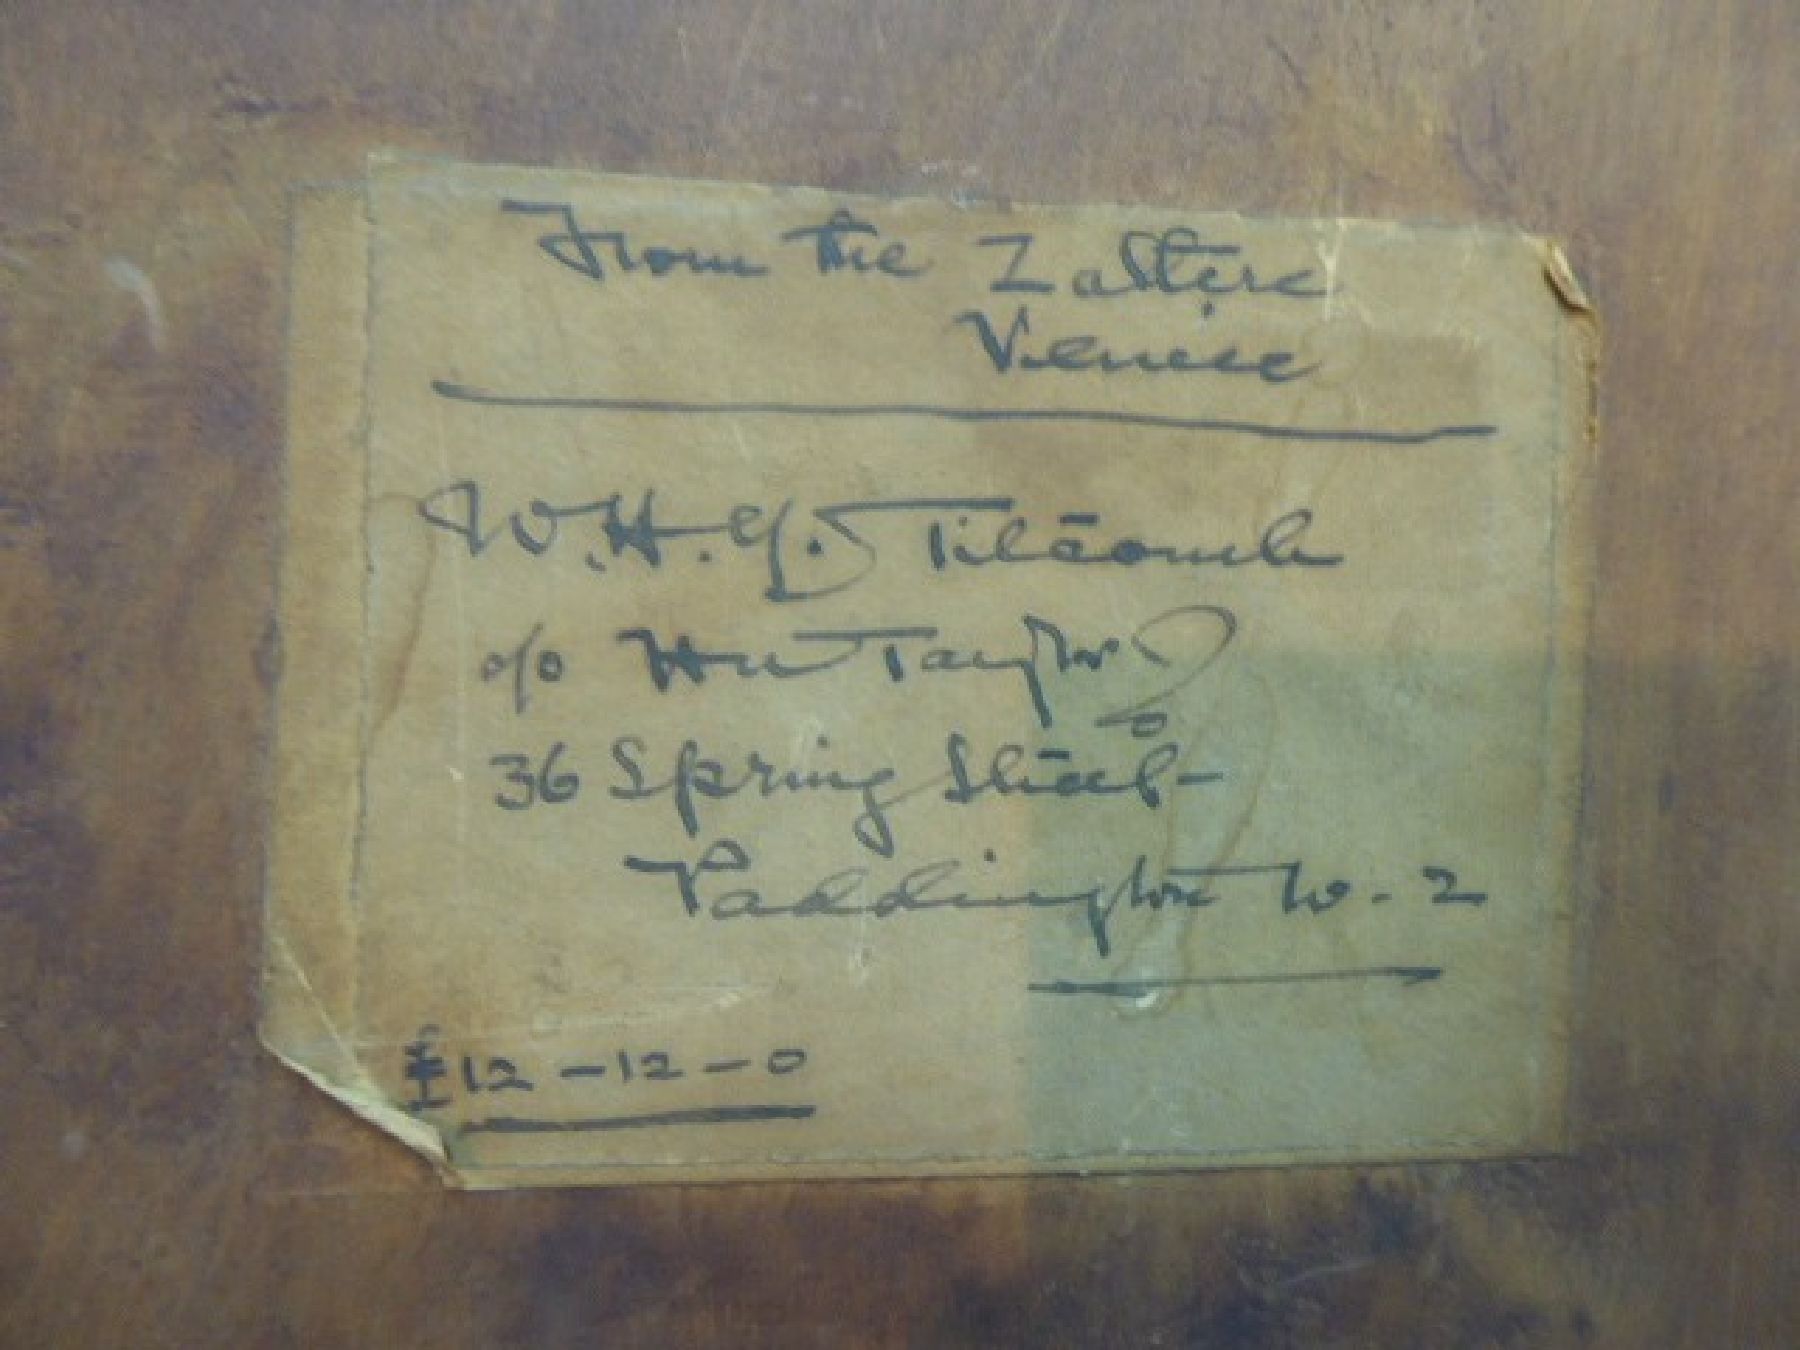 From the Zattere
Venice
W.H.Y. Titcomb
c/o Taylor
36 Spring Street
Paddington W-2
£12-12-0